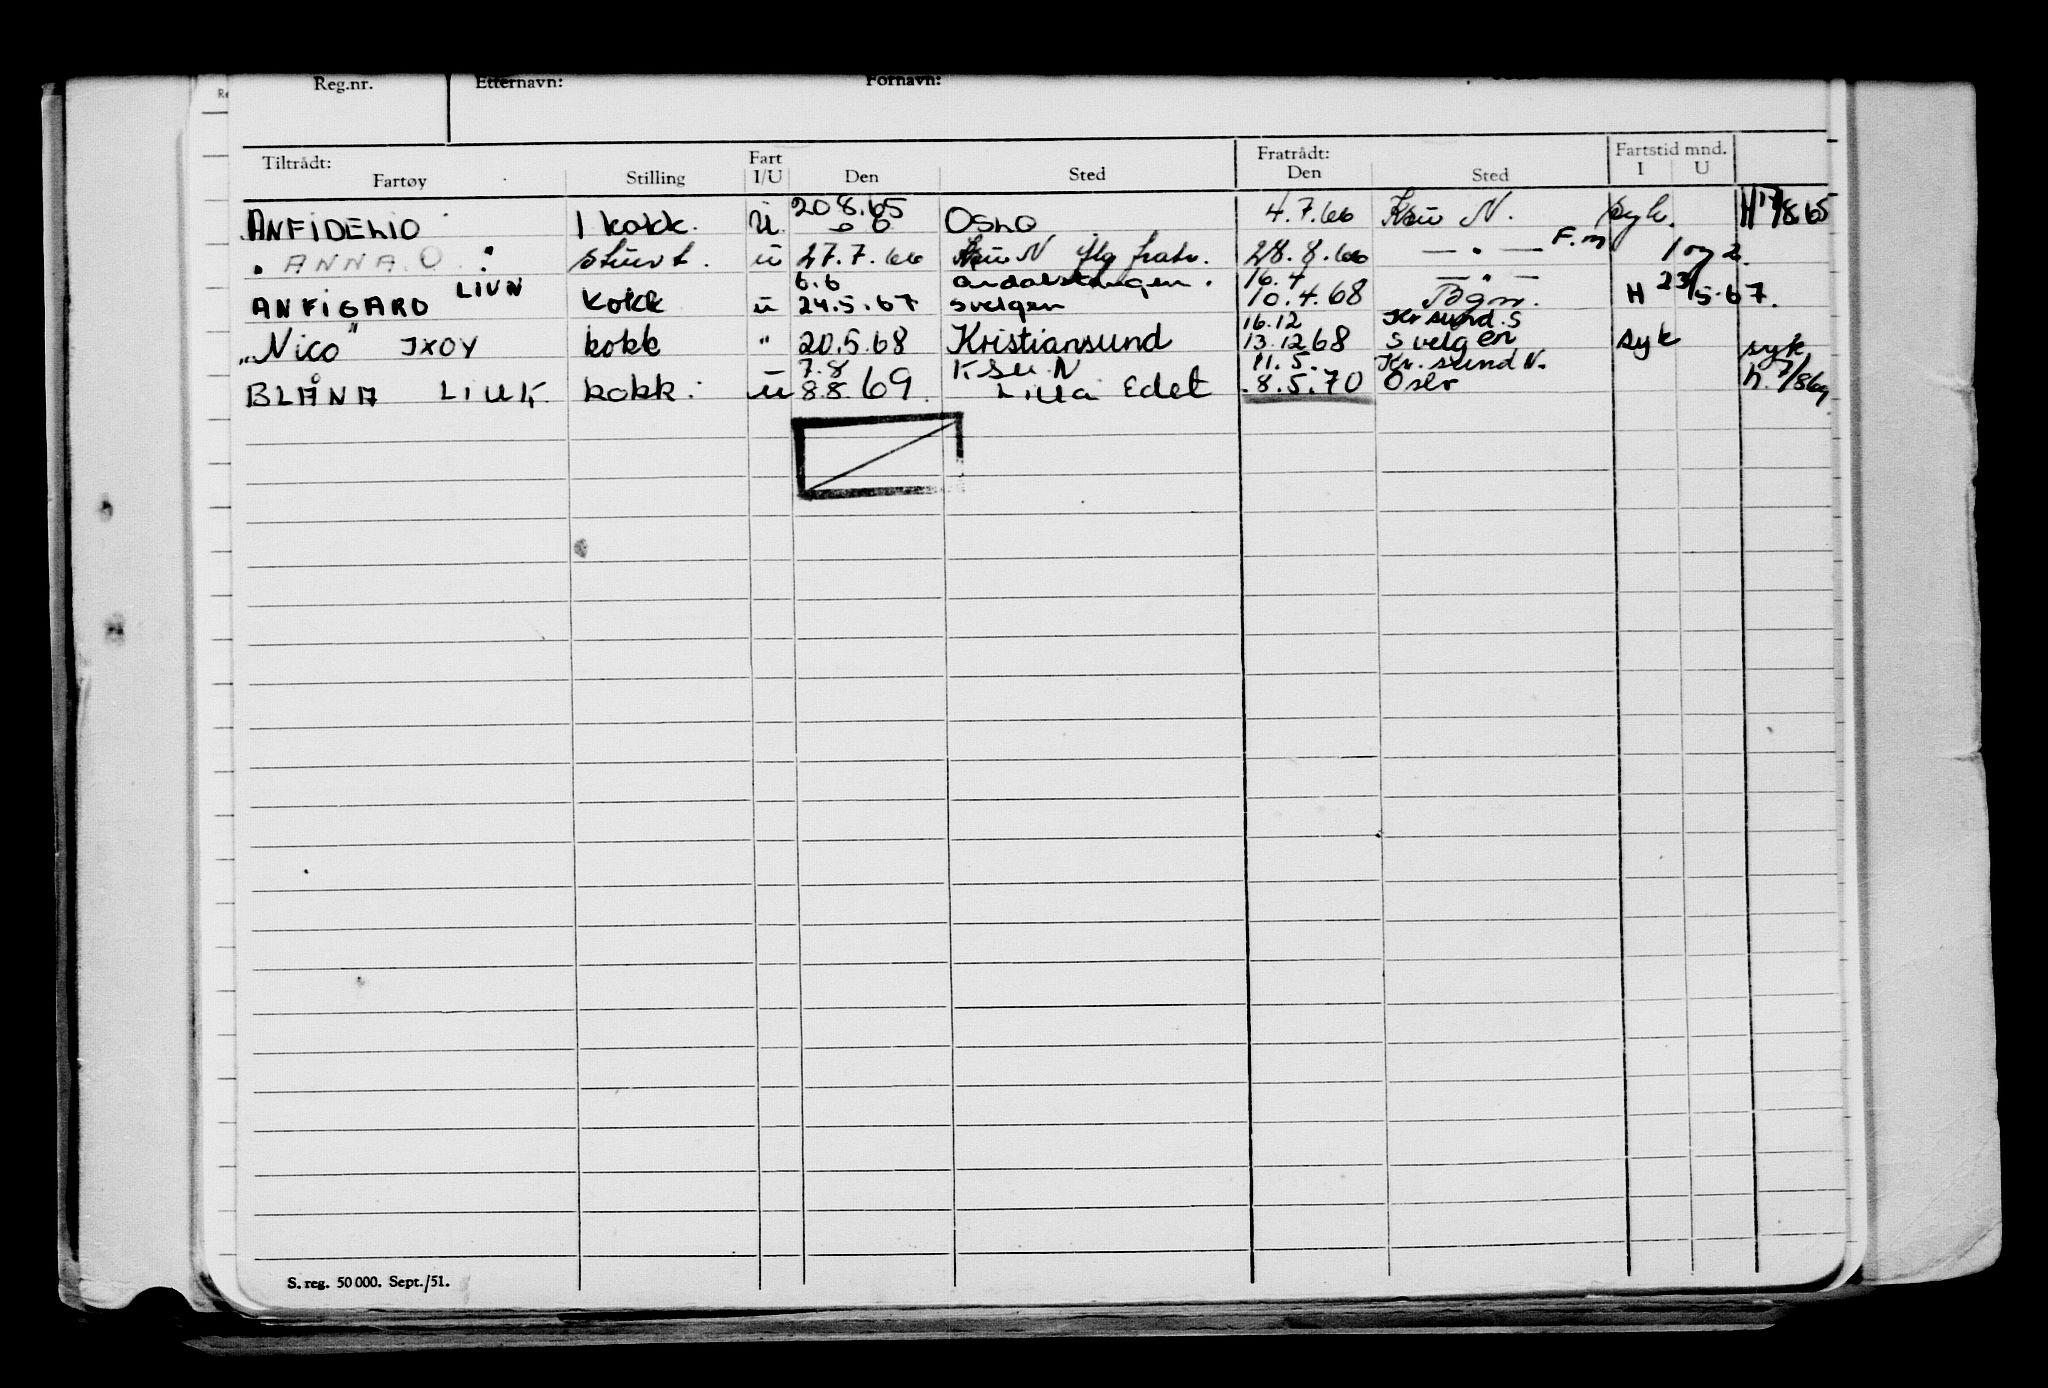 Reg.nr. Etternavn: Fornavn:
Tiltrådt: Fartøy Stilling Fart I/U Den Sted Fratrådt: Den Sted Fartstid mnd. I U
ANFIDELIO 1 kokk. U 20 8.65 OSLO 4.7.66 N. syk. H 17/8 65
" ANNA O. " stuert. u 27.7.66 N iflg fratr. 28.8.66 — " — F.m 1 og 2.
6.6 16.4 — " —
ANFIGARO LIVN kokk u 24.5.67 svelgen 10.4.68 H 23/5.67.
16.12 Kr sund. S
"Nico" JXOY kokk " 20.5.68 Kristiansund 13.12 68 Svelgen syk
7.8 KSu. N 11.5. Kr. sund N. syk
BLÅNA LIUK kokk. u 8.8.69. Lilla Edet 8.5.70 Oslo h. 7/8 69
S. reg. 50 000. Sept./51.